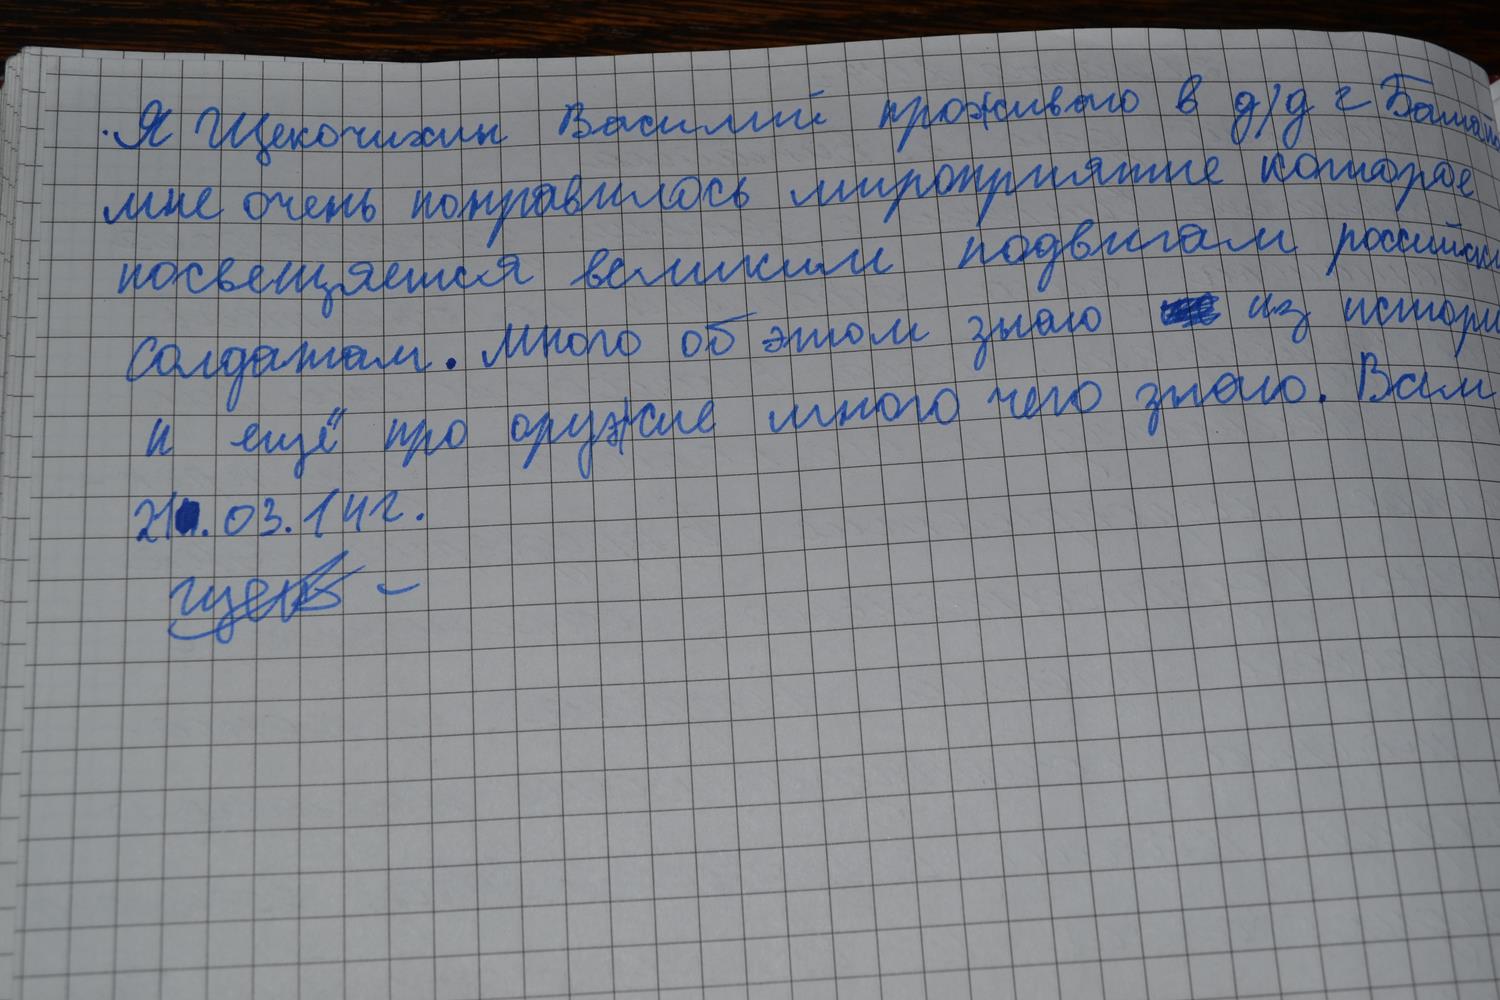 Я Щекочихин Василий проживаю в д/д г Балашо
мне очень понравилось мироприятие которое
посвещяется великим подвигам российски
солдатам. много об этом знаю из истори
и ещё про оружие много чего знаю. Вам
21.03.14г.